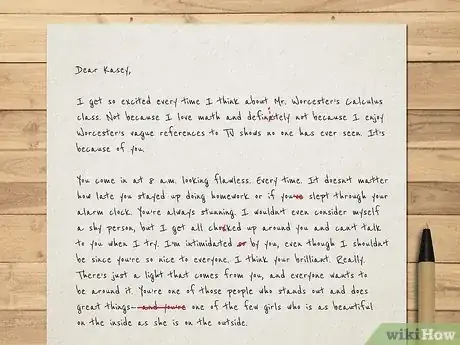 Dear Kasey,
I get so excited every time I think about Mr. Worcester's Calculus
class. Not because I love math and definitely not because I enjoy
Worcester's vague references to TV shows no one has ever seen. It's
because of you.
You come in at 8 a.m. looking flawless. Every time. It doesn't matter
how late you stayed up doing homework or if you're slept through your
alarm clock. You're always stunning. I wouldn't even consider myself
a shy person, but I get all chocked up around you and can't talk
to you when I try. I'm intimidated or by you, even though I shouldn't
be since you're so nice to everyone. I think your brilliant. Really.
There's just a light that comes from you, and everyone wants to
be around it. You're one of those people who stands out and does
great things— and you're one of the few girls who is as beautiful
on the inside as she is on the outside.
wikiHow